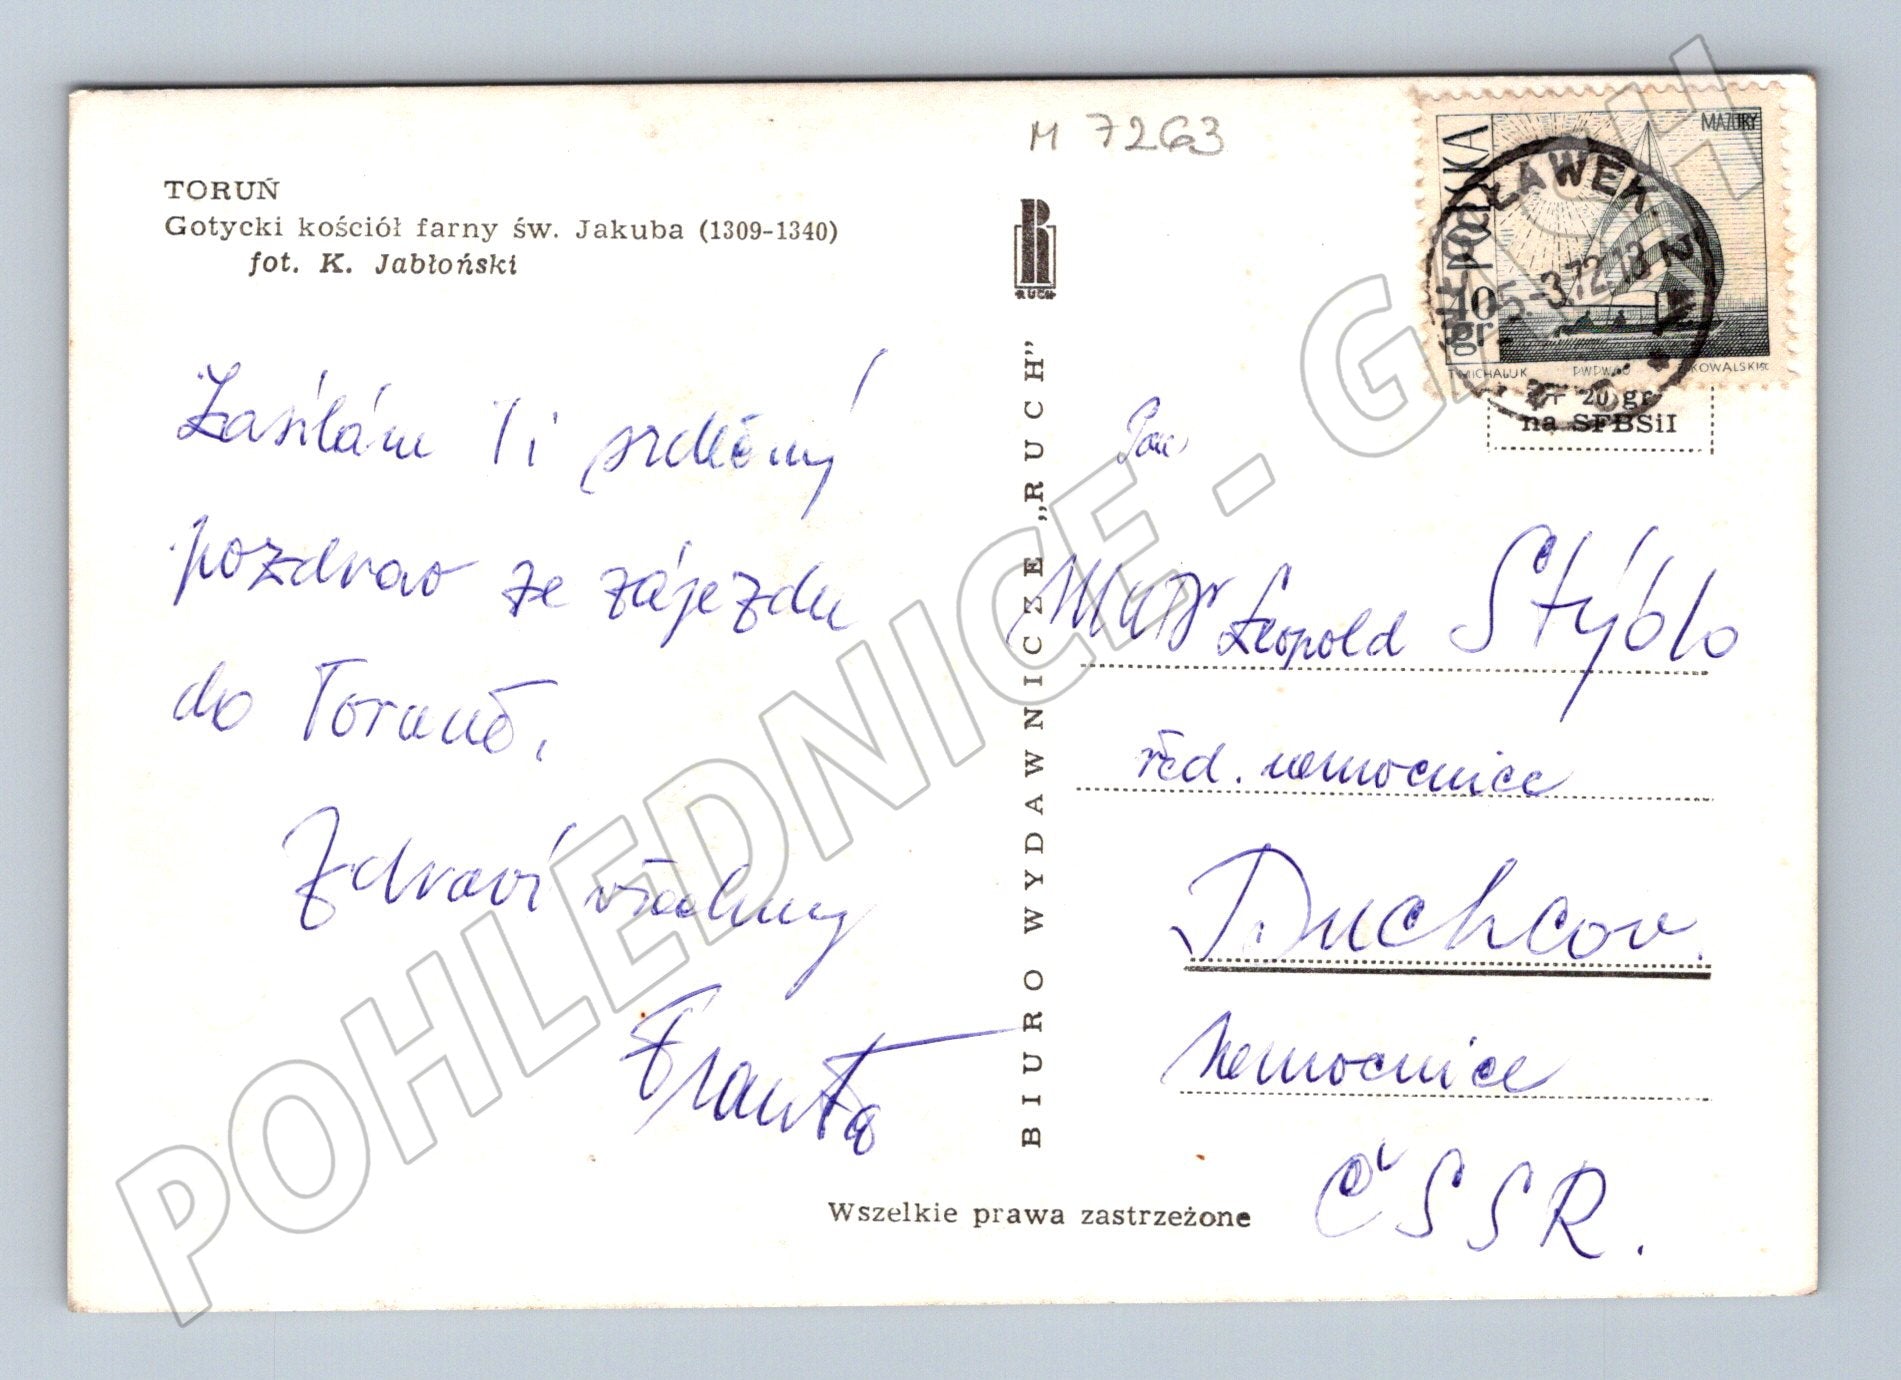 M 7263
TORUŃ
Gotycki kościół farny św. Jakuba (1309-1340)
fot. K. Jabłoński
Zasílám Ti srdečný
pozdrav ze zájezdu
do Toruně.
Zdraví všechny
Franta
RUCH
BIURO WYDAWNICZE „RUCH"
POLSKA
MAZURY
10
gr
T. MICHALUK
PWPW 66
WŁOCŁAWEK
5-3.72.18
20 gr
na SFBSiI
Pan
MUDr Leopold Stýblo
řed. nemocnice
Duchcov.
Nemocnice
ČSSR.
Wszelkie prawa zastrzeżone
POHLEDNICE - GMCH